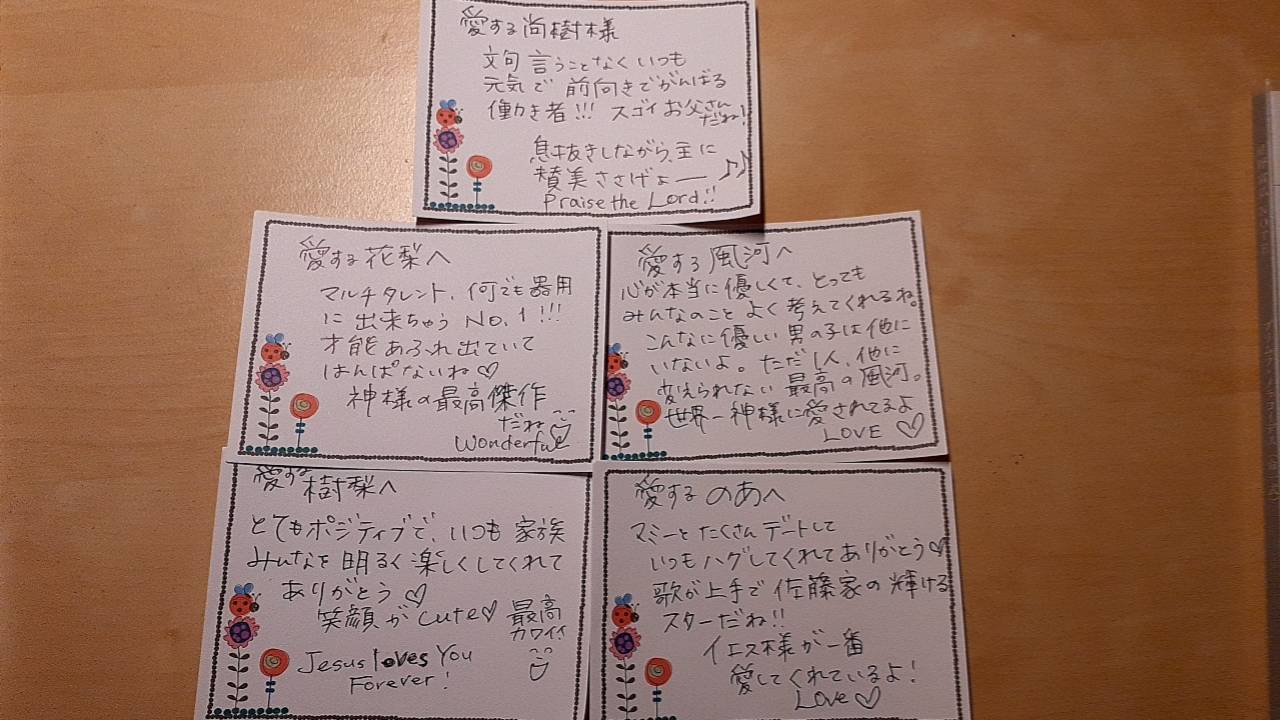 愛する尚樹様
文句言うことなくいつも
元気で前向きでがんばる
働き者!!! スゴイお父さん
だね!
息抜きしながら、主に
賛美ささげよー♪♪
Praise the Lord!!
愛する花梨へ
マルチタレント、何でも器用
に出来ちゃうNo.1!!!
才能あふれ出ていて
はんぱないね♡
神様の最高傑作
だね
Wonderful
愛する風河へ
心が本当に優しくて、とっても
みんなのことよく考えてくれるね。
こんなに優しい男の子は他に
いないよ。ただ1人、他に
変えられない最高の風河。
世界一神様に愛されてるよ
LOVE ♡
愛する樹梨へ
とてもポジティブで、いつも家族
みんなを明るく楽しくしてくれて
ありがとう♡
笑顔がcute♡ 最高
カワイイ
Jesus loves You
Forever!
愛するのあへ
マミーとたくさんデートして
いつもハグしてくれてありがとう♡
歌が上手で佐藤家の輝ける
スターだね!!
イエス様が一番
愛してくれているよ!
Love♡